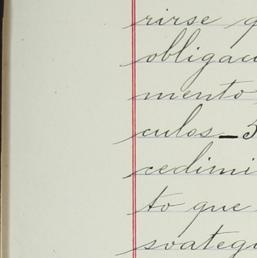 rirse q
obligaci
mento
culos_5
cedimi
to que
svateg